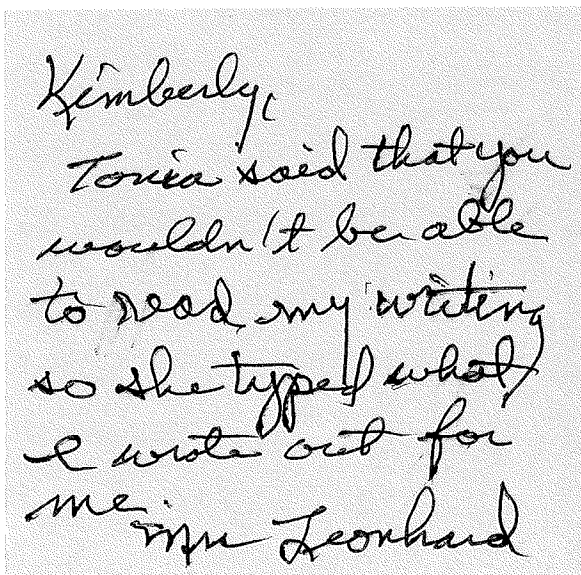 Kimberly,
Tonia said that you
wouldn't be able
to read my writing
so she typed what
I wrote out for
me.
Mr Leonhard